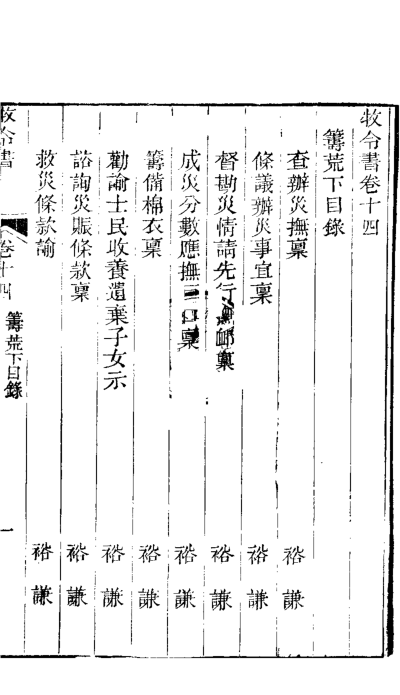 牧令書卷十四
籌荒下目錄
查辦災撫稟 裕謙
條議辦災事宜稟 裕謙
督勘災情請先行撫卹稟 裕謙
成災分數應撫三口稟 裕謙
籌備棉衣稟 裕謙
勸諭士民收養遺棄子女示 裕謙
諮詢災賑條款稟 裕謙
救災條款諭 裕謙
牧令書 卷十四 籌荒下目錄 一